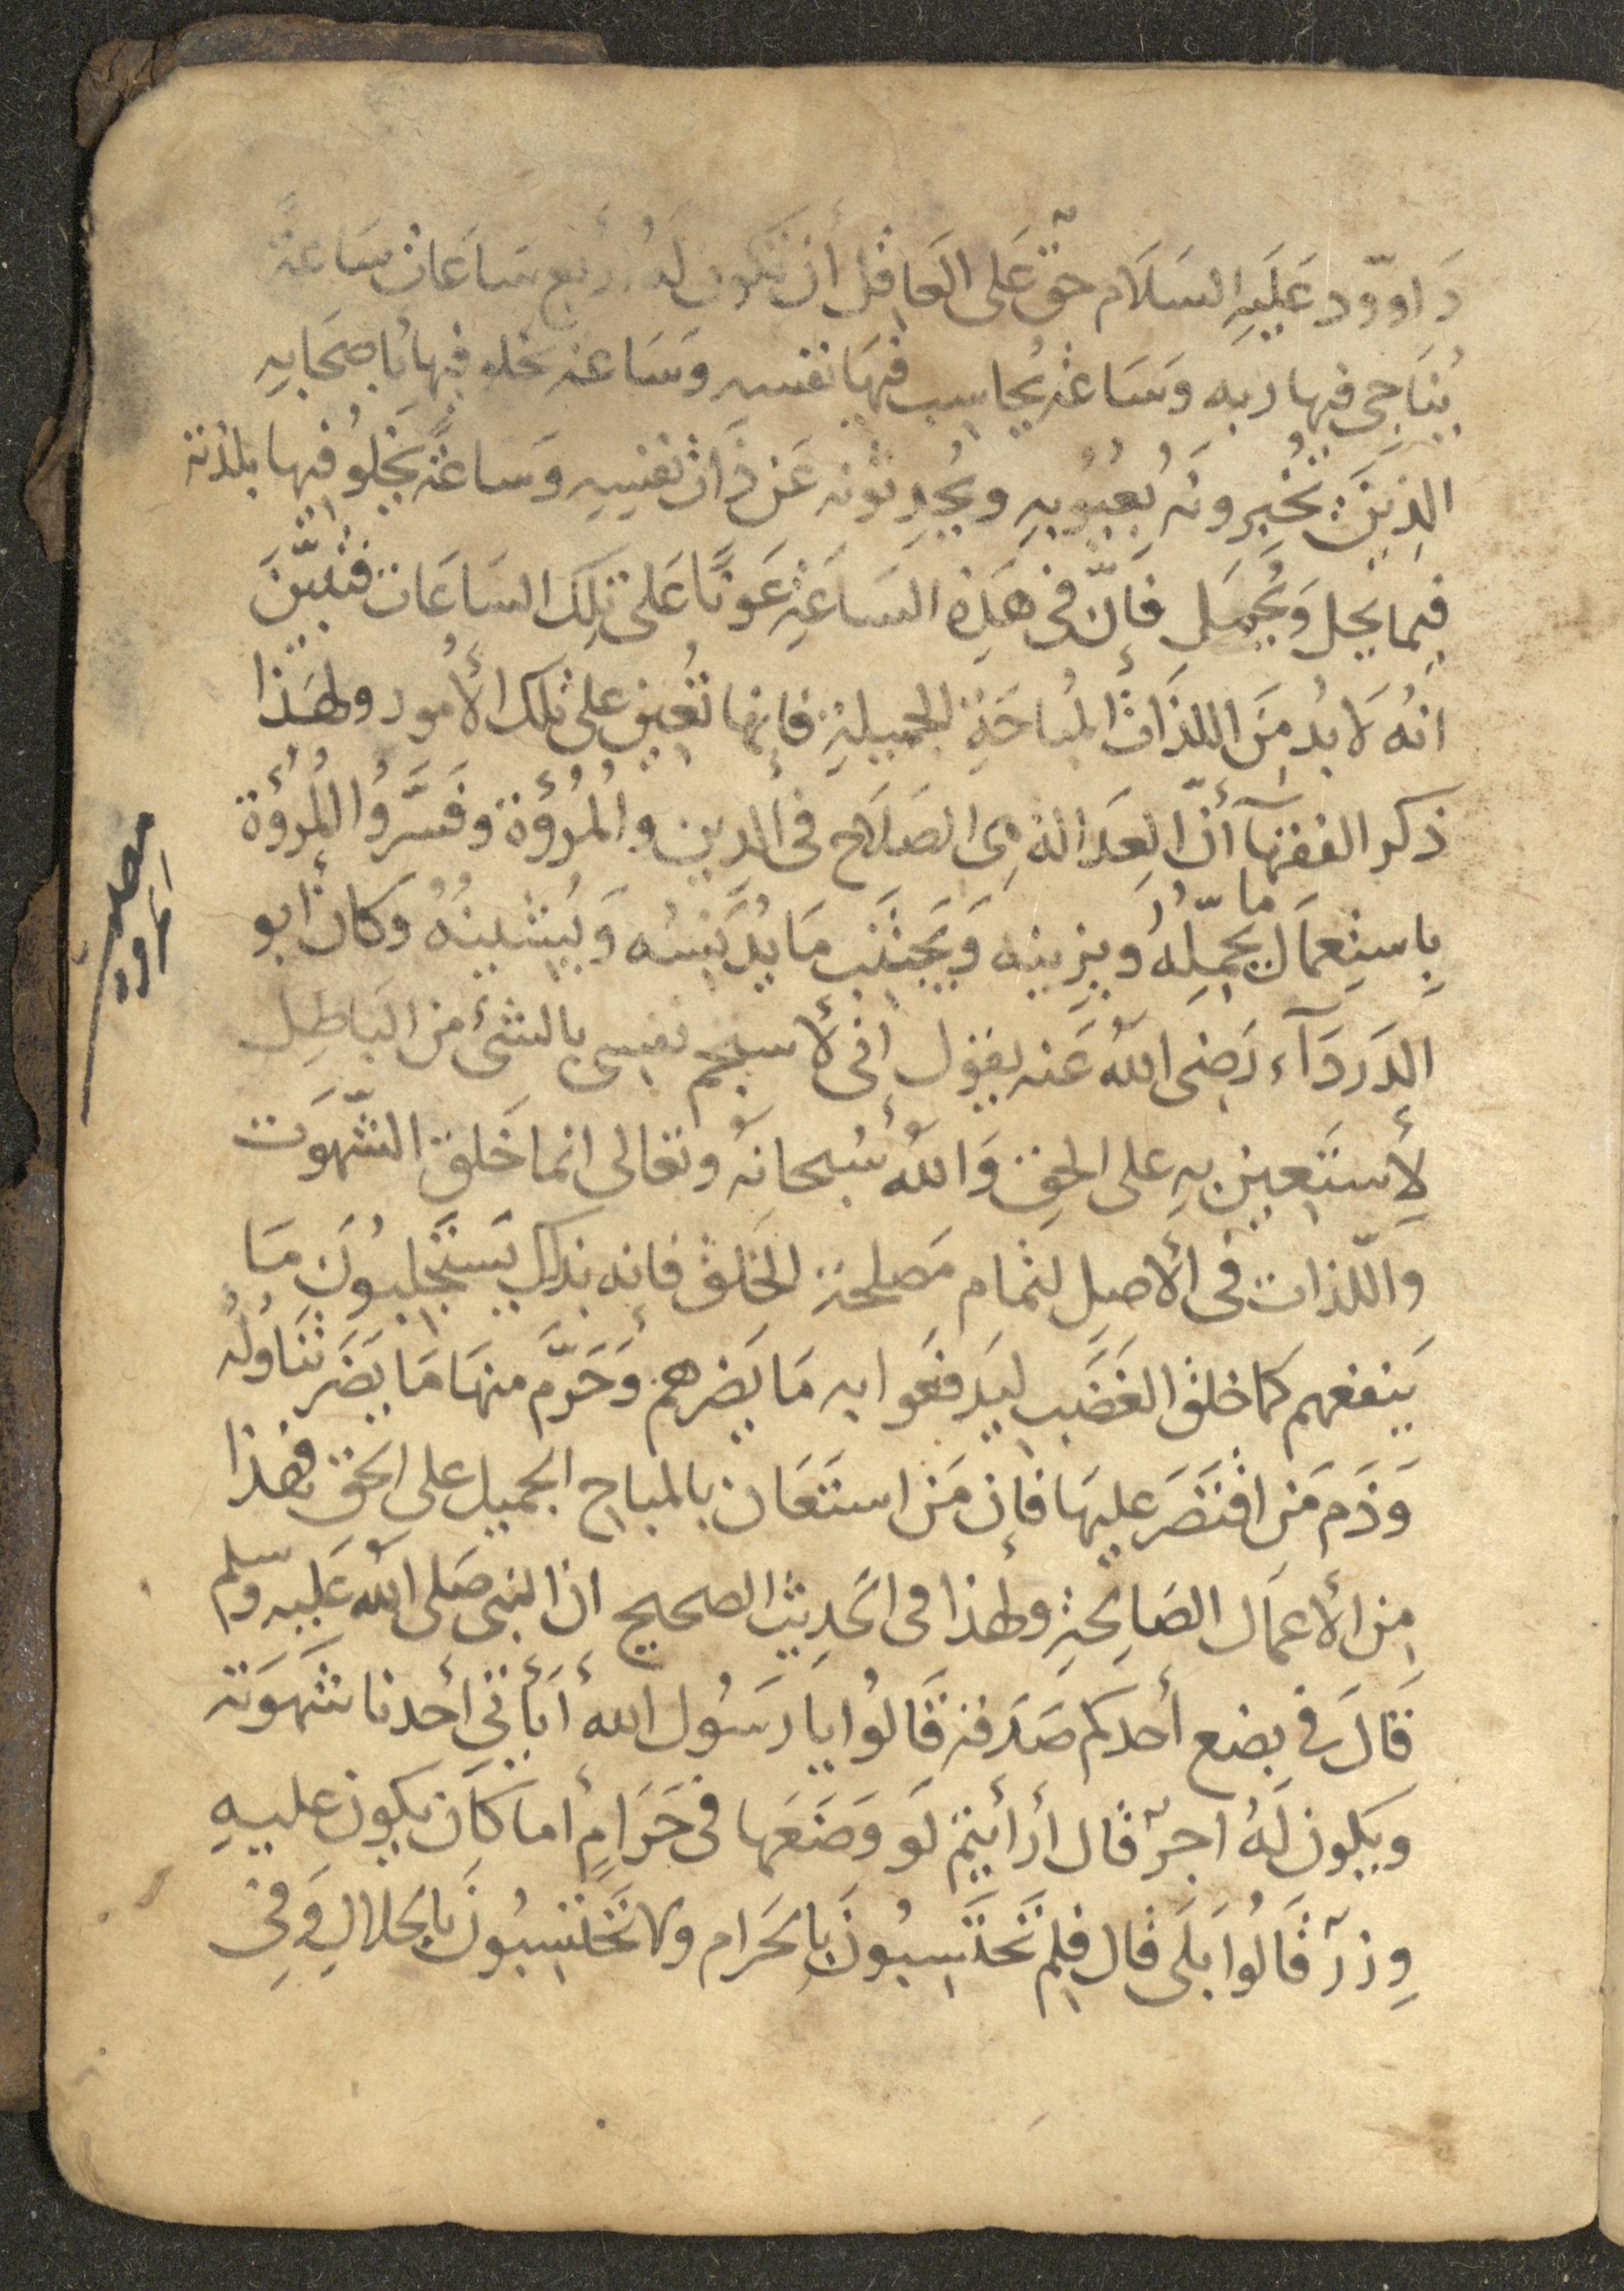 دَاوُود عَلَيهِ السَلَام حقٌّ عَلى العَاقِل أن تكون لهُ أربع سَاعَات سَاعَةٌ
يُنَاجى فيها ربه وَسَاعَةٌ يُحاسِب فيهَا نفسه وَسَاعة يخلو فيها بأصحَابِهِ
الذِينَ يُخبِرونَهُ بُعيُوبِهِ ويُحدِثونه عَن ذَات نفسِهِ وَسَاعَة يَخلُو فيها بلذته
فيما يَحِل وَيَجمل فَانّ فى هَذِهِ السَاعَةِ عَونًا عَلى تِلكَ السَاعَات فتبيّنَ
انهُ لَا بُد مِنَ اللذَات المُبَاحَةِ الجميلةِ فإنها تُعِين على تلك الأُمور ولهَذا
ذكر الفقهآ أنّ العَدالة هى الصَلَاح فى الدِين والمُرُؤة وفَسَّرُوا المُرُؤة
بِاستِعمَال ما يُجَمّلِهُ ويزينه وَيَجتنب مَا يُدَنِسُه وَيَشينهُ وَكان أبو
الدَردَآء رَضى اللهُ عَنه يقول انى لأستجم نفسى بالشئ من البَاطِل
لأستَعِين بِهِ على الحق وَاللهُ سُبحانهُ وتعالى انما خَلقَ الشّهوَت
واللّذات فى الأصل لتمام مَصلحةِ الخَلق فانه بذلك يَستَجلِبُونَ مَا
يَنفعهم كما خلق الغَضَب ليَدفَعوا به مَا يَضرهم وَحَرَّم منهَا مَا يَضر تنَاوُلهُ
وَذَم مَن اقتصَرَ عليهَا فإن مَن استَعَان بالمباح الجميل على الحق فهذا
مِن الأعمَال الصَالِحَةِ ولهذا فى الحَدِيث الصحيح ان النبى صَلى اللهُ عَلَيه وسلم
قَالَ فى بضع أحدكم صَدقة قَالُوا يا رَسُول الله أيأتى أحَدنا شَهوَته
ويكون لَهُ اجرٌ قال أرأيتم لَو وَضَعَها فى حَرَامٍ أما كَان يكون عليهِ
وِزرٌ قَالُوا بَلَى قَال فلِم تَحتَسِبُونَ بالحَرام ولا تَحتَسِبُونَ بالحلالِ وَفى